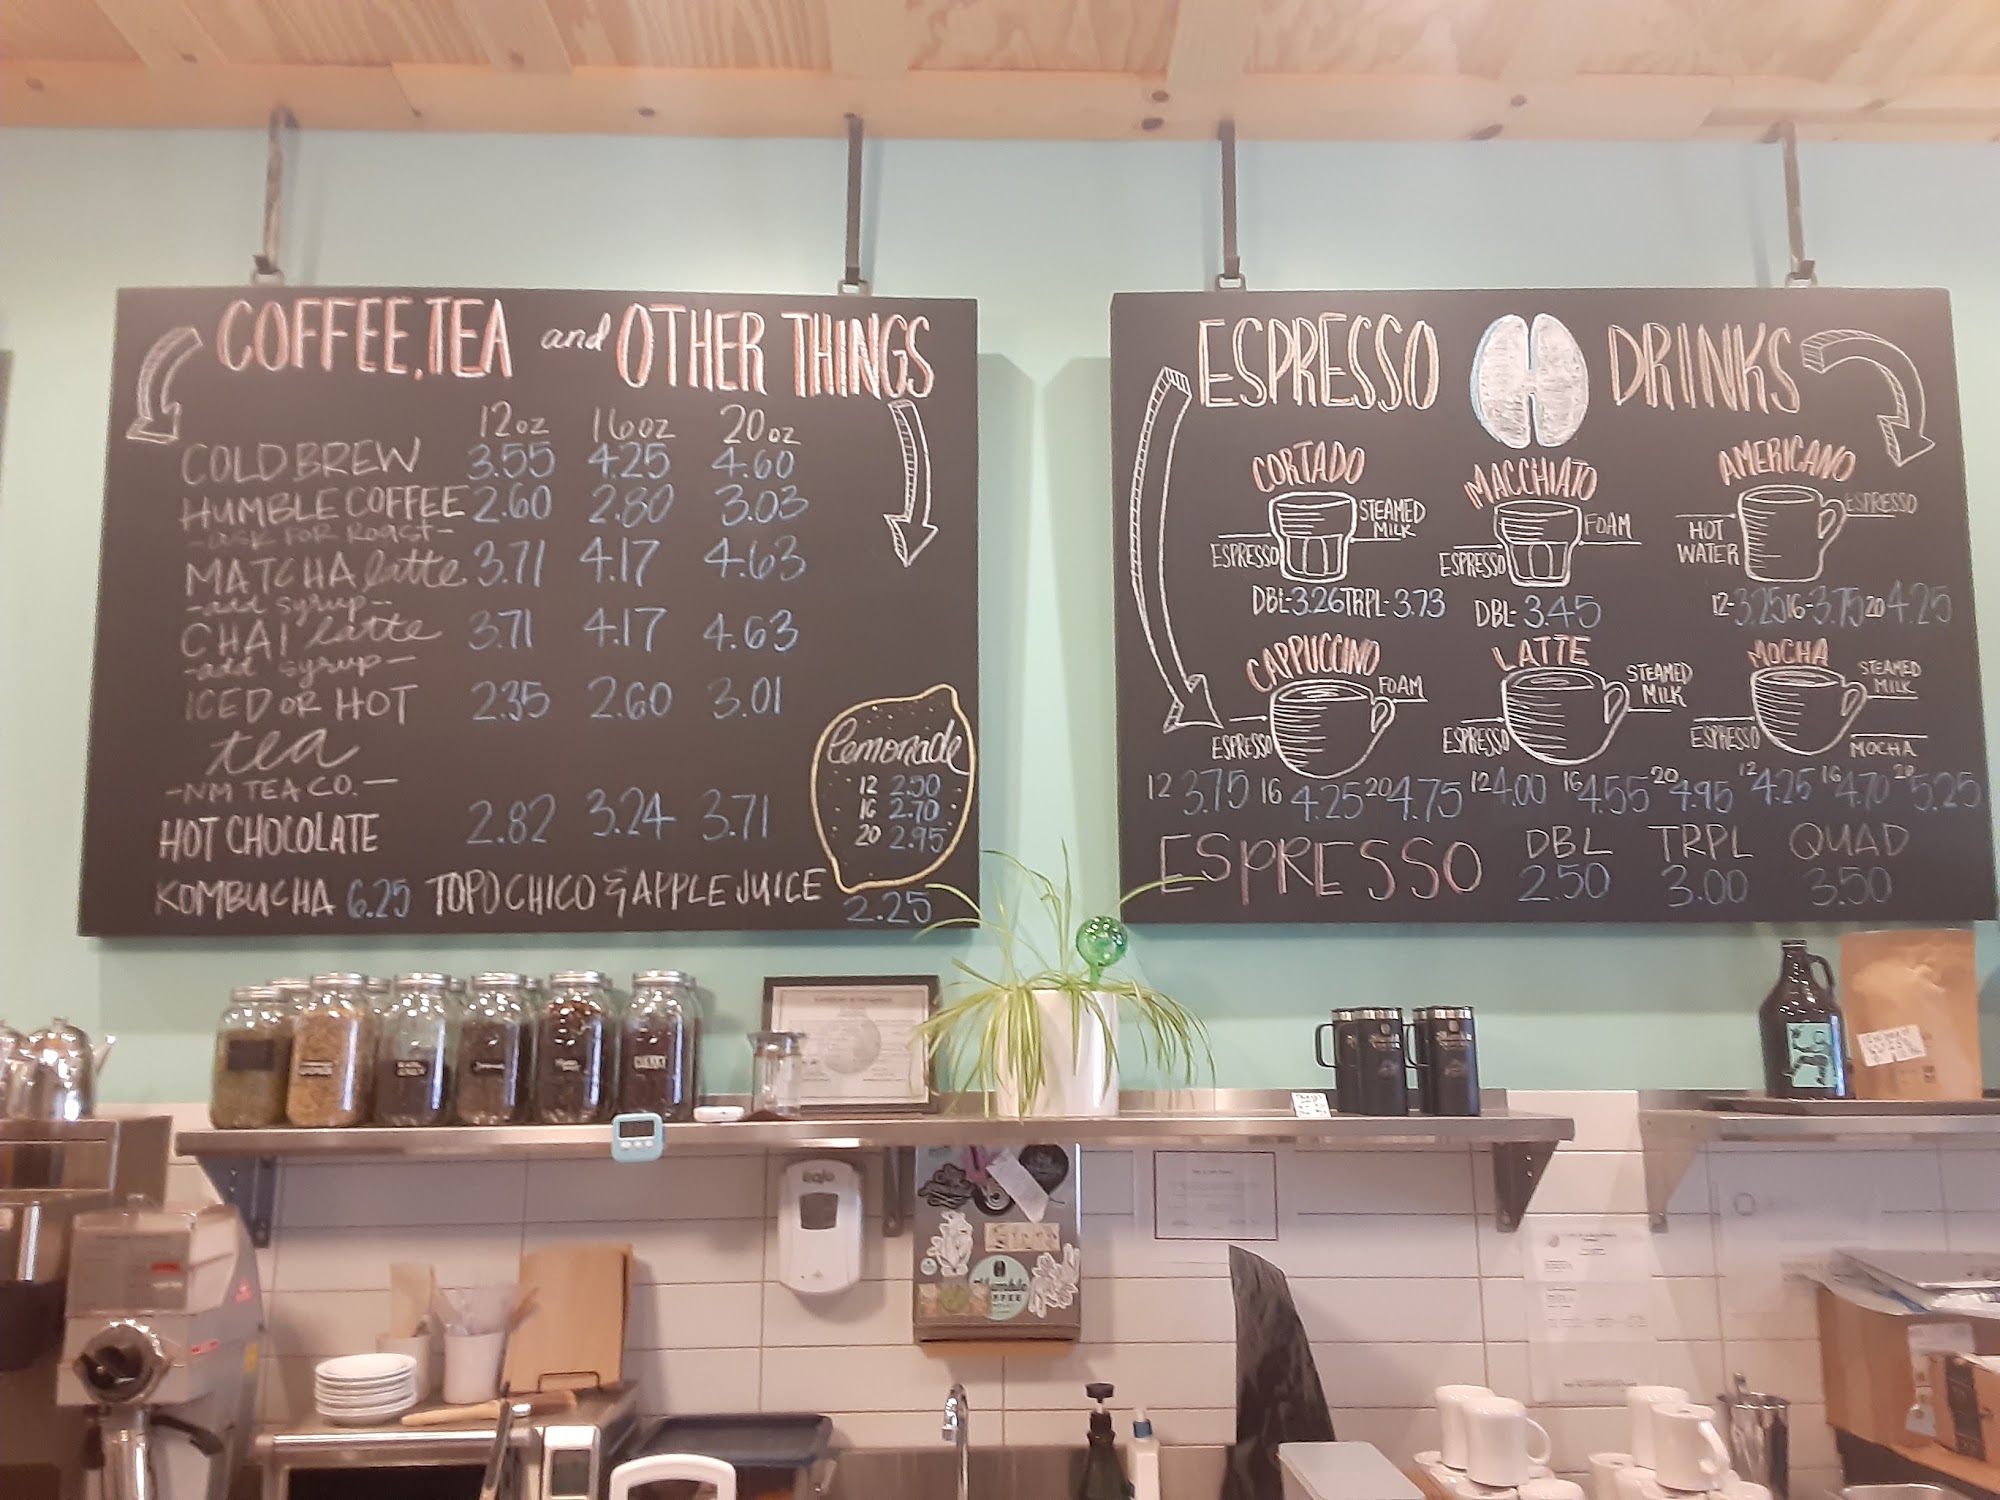 COFFEE, TEA and OTHER THINGS
12oz 16oz 20oz
COLD BREW 3.55 4.25 4.60
HUMBLE COFFEE 2.60 2.80 3.03
-ask FOR Roast-
MATCHA latte 3.71 4.17 4.63
-add syrup-
CHAI latte 3.71 4.17 4.63
-add syrup-
ICED OR HOT 2.35 2.60 3.01
tea
-NM TEA CO.-
HOT CHOCOLATE 2.82 3.24 3.71
KOMBUCHA 6.25 TOPO CHICO & APPLE JUICE 2.25
Lemonade
12 2.50
16 2.70
20 2.95
ESPRESSO DRINKS
CORTADO
STEAMED MILK
ESPRESSO
DBL-3.26 TRPL-3.73
MACCHIATO
FOAM
ESPRESSO
DBL-3.45
AMERICANO
ESPRESSO
HOT
WATER
12-3.25 16-3.75 20 4.25
CAPPUCCINO
FOAM
ESPRESSO
12 3.75 16 4.25 20 4.75
LATTE
STEAMED
MILK
ESPRESSO
12 4.00 16 4.55 20 4.95
MOCHA
STEAMED
MILK
ESPRESSO
MOCHA
12 4.25 16 4.70 20 5.25
ESPRESSO DBL TRPL QUAD
2.50 3.00 3.50
GOJO